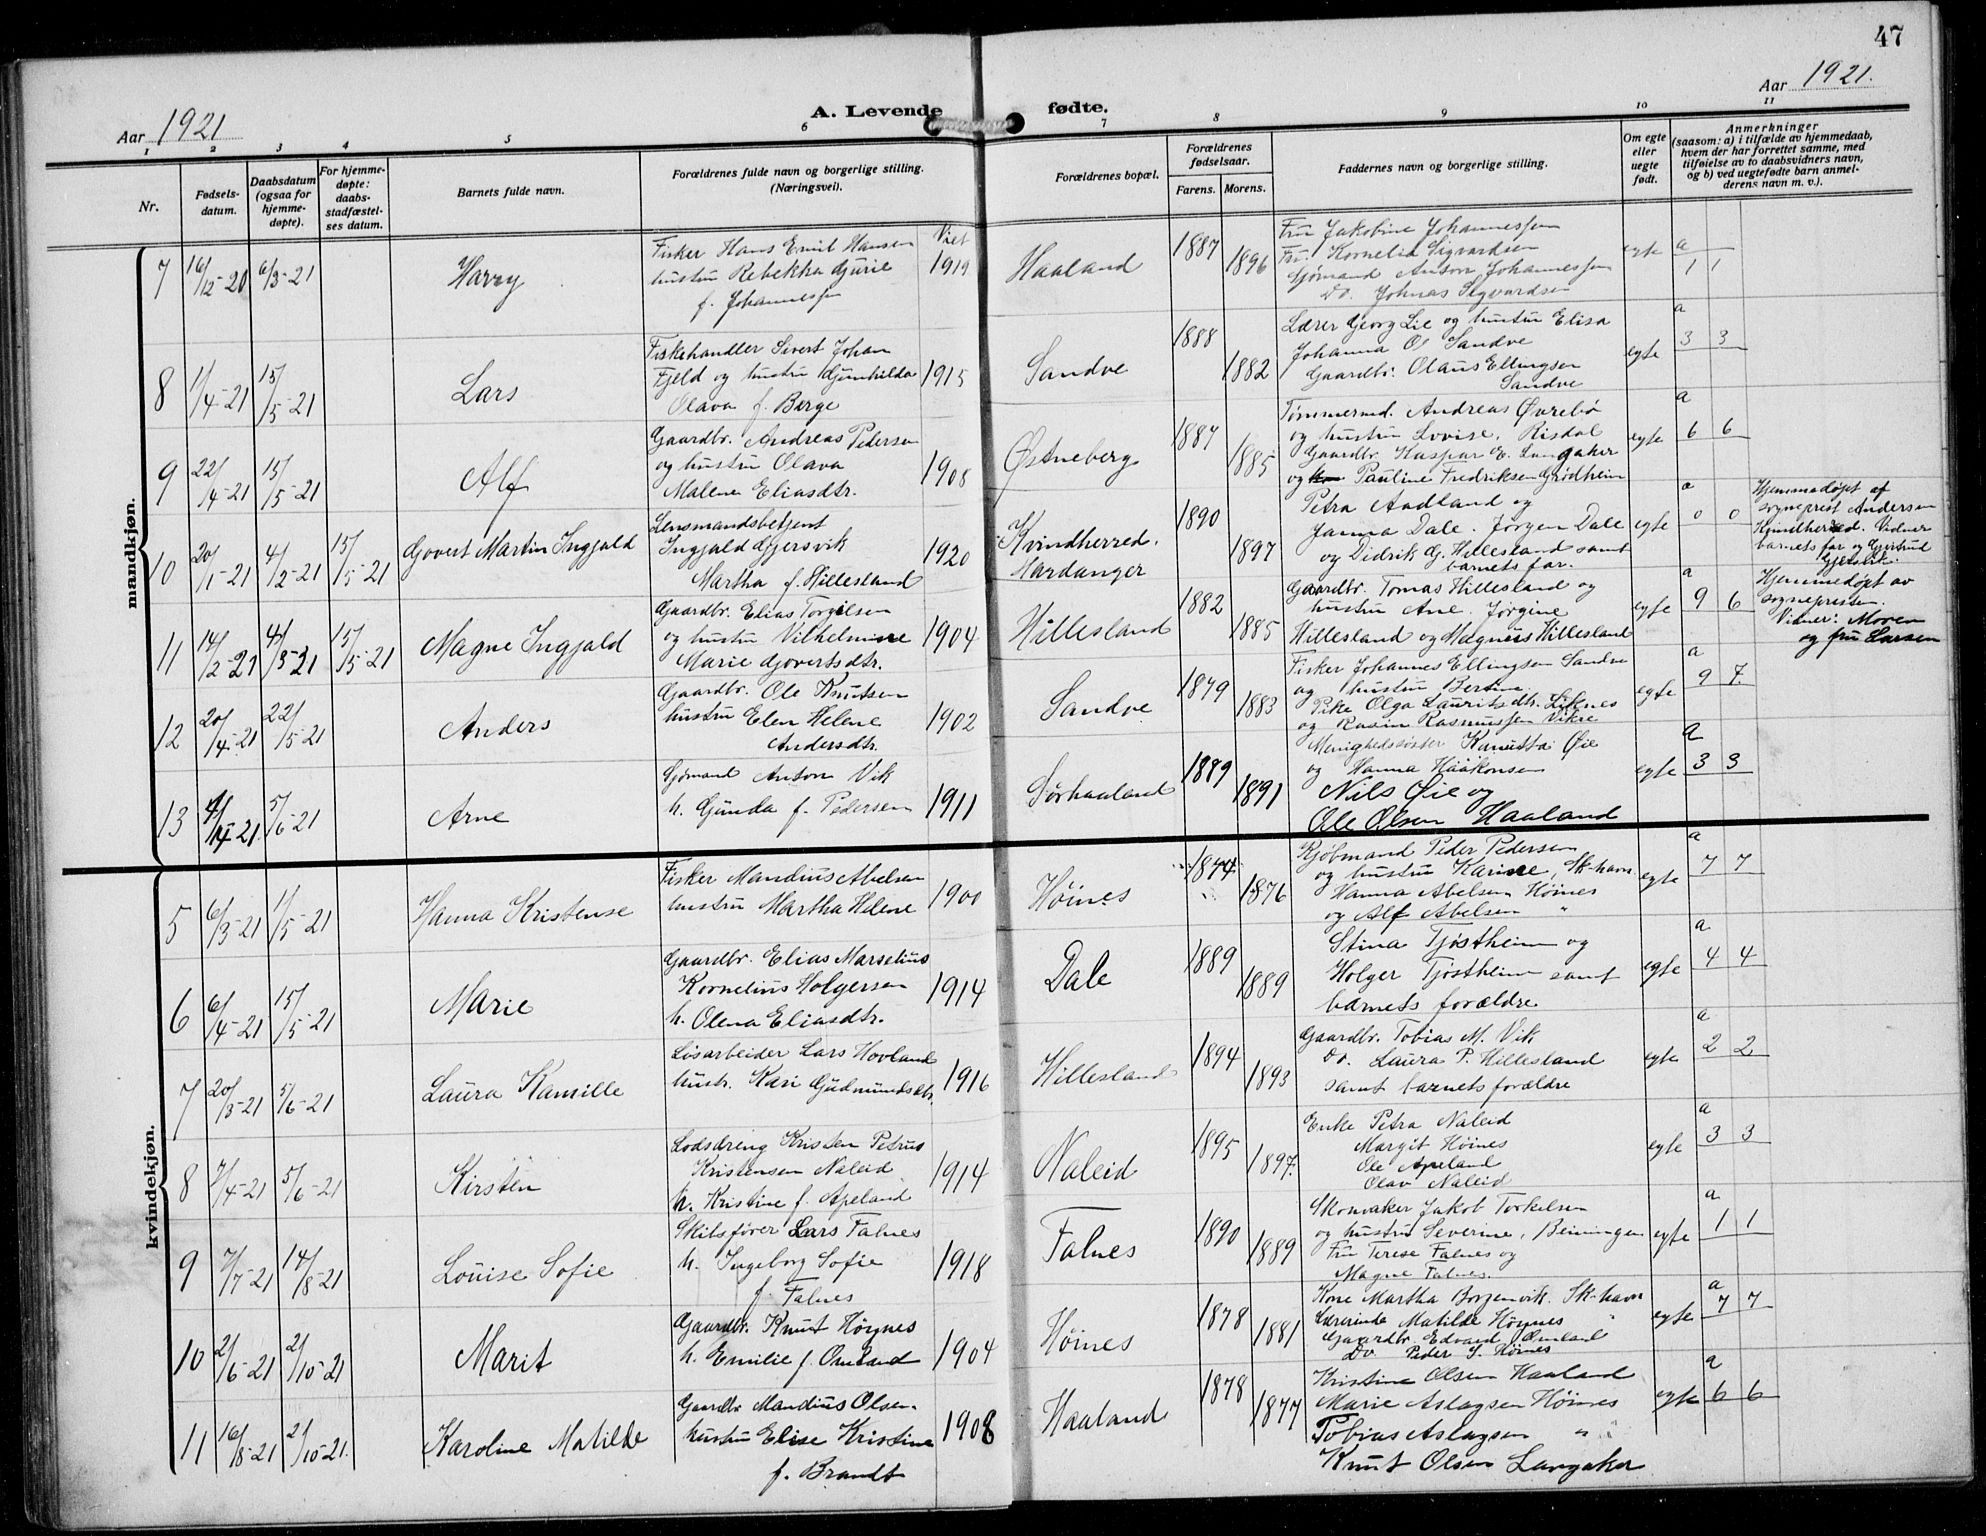 47
Aar 1921
A. Levende fødte.
Aar 1921.
1 2 3 4 5 6 7 8 9 10 11
Nr.
Fødsels-
datum.
Daabsdatum
(ogsaa for
hjemme-
døpte).
For hjemme-
døpte:
daabs-
stadfæstel-
ses datum.
Barnets fulde navn.
Forældrenes fulde navn og borgerlige stilling.
(Næringsvei).
Forældrenes bopæl.
Forældrenes
fødselsaar.
Farens. Morens.
Faddernes navn og borgerlige stilling.
Om egte
eller
uegte
født.
Anmerkninger
(saasom: a) i tilfælde av hjemmedaab,
hvem der har forrettet samme, med
tilføielse av to daabsvidners navn,
og b) ved uegtefødte barn anmel-
derens navn m. v.).
mandkjøn.
7 16/12-20 6/3-21 Harry
Fisker Hans Emil Hansen
hustru Rebekka Gurie
f. Johannessen
Viet
1919
Haaland 1887 1896
Fru Jakobine Johannessen
Fru Kornelia Sigvardsen
Sjømand Anton Johannessen
Do. Johnas Sigvardsen
egte a
1 1
8 1/4-21 15/5-21 Lars
Fiskehandler Sivert Johan
Fjeld og hustru Gunhilda
Olava f. Berge
1915
Sandve 1888 1882
Lærer Georg Lie og hustru Elisa
Johanna O. Sandve
Gaardbr. Olaus Ellingsen
Sandve
egte a
3 3
9 22/4-21 15/5-21 Alf
Gaardbr. Andreas Pederse
og hustru Olava
Malene Eliasdtr.
1908
Østneberg 1887 1885
Tømmermd. Andreas Øvrebø
og hustru Lovise, Risdal
Gaardbr. Kaspar E. Langaker
og Pauline Fredriksen Grødheim
egte a
6 6
10 20/1-21 4/2-21 15/5-21 Govert Martin Ingjald
Lensmandsbetjent
Ingjald Gjersvik
Martha f. Hillesland
1920
Kvindherred.
Hardanger
1890 1897
Petra Aadland og
Janna Dale. Jørgen Dale
og Didrik G. Hillesland samt
barnets far.
egte a
0 0
Hjemmedøpt af
sogneprest Andersen
Kvindherred. Vidner
barnets far og Gjertrud
Gjersvik.
11 14/2-21 4/3-21 15/5-21 Magne Ingjald
Gaardbr. Elias Torgilsen
og hustru Vilhelmine
Marie Govertsdtr.
1904
Hillesland 1882 1885
Gaardbr. Tomas Hillesland og
hustru Ane. Jørgine
Hillesland og Magnus Hillesland
egte a
9 6
Hjemmedøpt av
sognepresten.
Vidner: Moren
og fru Larsen
12 20/4-21 22/5-21 Anders
Gaardbr. Ole Knutsen
hustru Elen Helene
Andersdtr.
1902
Sandve 1879 1883
Fisker Johannes Ellingsen Sandve
og hustru Bertine
Pike Olga Lauritsdtr. Liknes
og Rasmus Rasmussen Vikre
egte a
9 7.
13 4/4-21. 5/6-21 Arne
Sjømand Anton Vik
h. Gunda f. Pedersen
1911
Sørhaaland 1889 1891
Menighedssøster Knutta Øie
og Hanna Haakonsen
Nils Øie og
Ole Olsen Haaland
egte a
3 3
kvindekjøn.
5 6/3-21 1/5-21 Hanna Kristense
Fisker Mandius Abelsen
hustru Martha Helene
1900
Høines 1874 1876
Kjøbmand Peder Pedersen
og hustru Karine, Sk-havn.
Hanna Abelsen Høines
og Alf Abelsen "
egte a
7 7
6 6/4-21 15/5-21 Marie
Gaardbr. Elias Marselius
Kornelius Holgersen
h. Olena Eliasdtr.
1914
Dale 1889 1889
Stina Tjøstheim og
Holger Tjøstheim samt
barnets forældre
egte a
4 4
7 20/3-21 5/6-21 Laura Kamille
Løsarbeider Lars Hovland
hustr. Kari Gudmundsdtr.
1916
Hillesland 1894 1893
Gaardbr. Tobias M. Vik
Do. Laura P. Hillesland
samt barnets forældre
egte a
2 2
8 7/4-21 5/6-21 Kirsten
Lodsdreng Kristen Petrus
Kristensen Naleid
h. Kristine f. Apeland
1914
Naleid 1895 1897.
Enke Petra Naleid
Margit Høines
Ole Apeland
Olav Naleid
egte a
3 3
9 7/7-21 14/8-21 Louise Sofie
Skibsfører Lars Falnes
h. Ingeborg Sofie
f. Falnes
1918
Falnes 1890 1889
Skomaker Jakob Torkelsen
og hustru Severine, Beiningen
Fru Terese Falnes og
Magne Falnes.
egte a
1 1
10 2/6-21 2/10-21 Marit
Gaardbr. Knut Høynes
h. Emilie f. Omland
1904
Høines 1878 1881
Kone Martha Borgenvik. Sk-havn
Lærerinde Matilde Høynes "
Gaardbr. Edvard Omland
Do Peder S. Høines
egte a
7 7
11 16/8-21 2/10-21. Karoline Matilde
Gaardbr. Mandius Olsen.
hustru Elise Kristine
f. Brandt
1908
Haaland 1878 1877
Kristine Olsen Haaland
Marie Aslagsen Høines
Tobias Aslagsen "
Knut Olsen Langaker
egte a
6 6